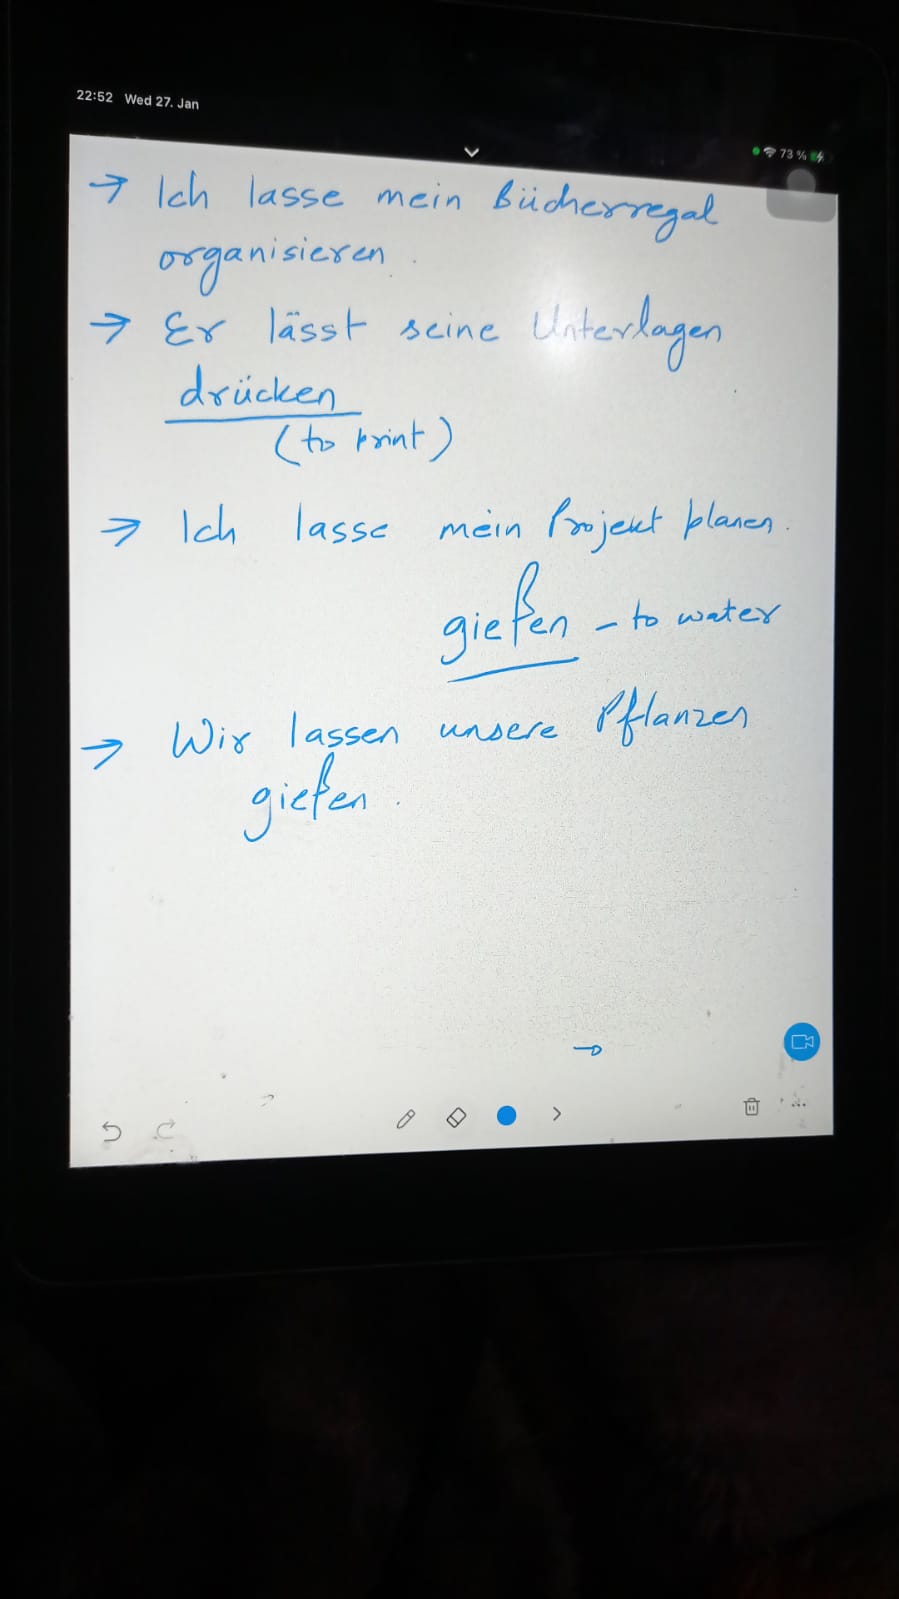 22:52 Wed 27. Jan
73 %
→ Ich lasse mein Bücherregal
organisieren.
→ Er lässt seine Unterlagen
drücken
(to print)
→ Ich lasse mein Projekt planen.
gießen - to water
→ Wir lassen unsere Pflanzen
gießen.